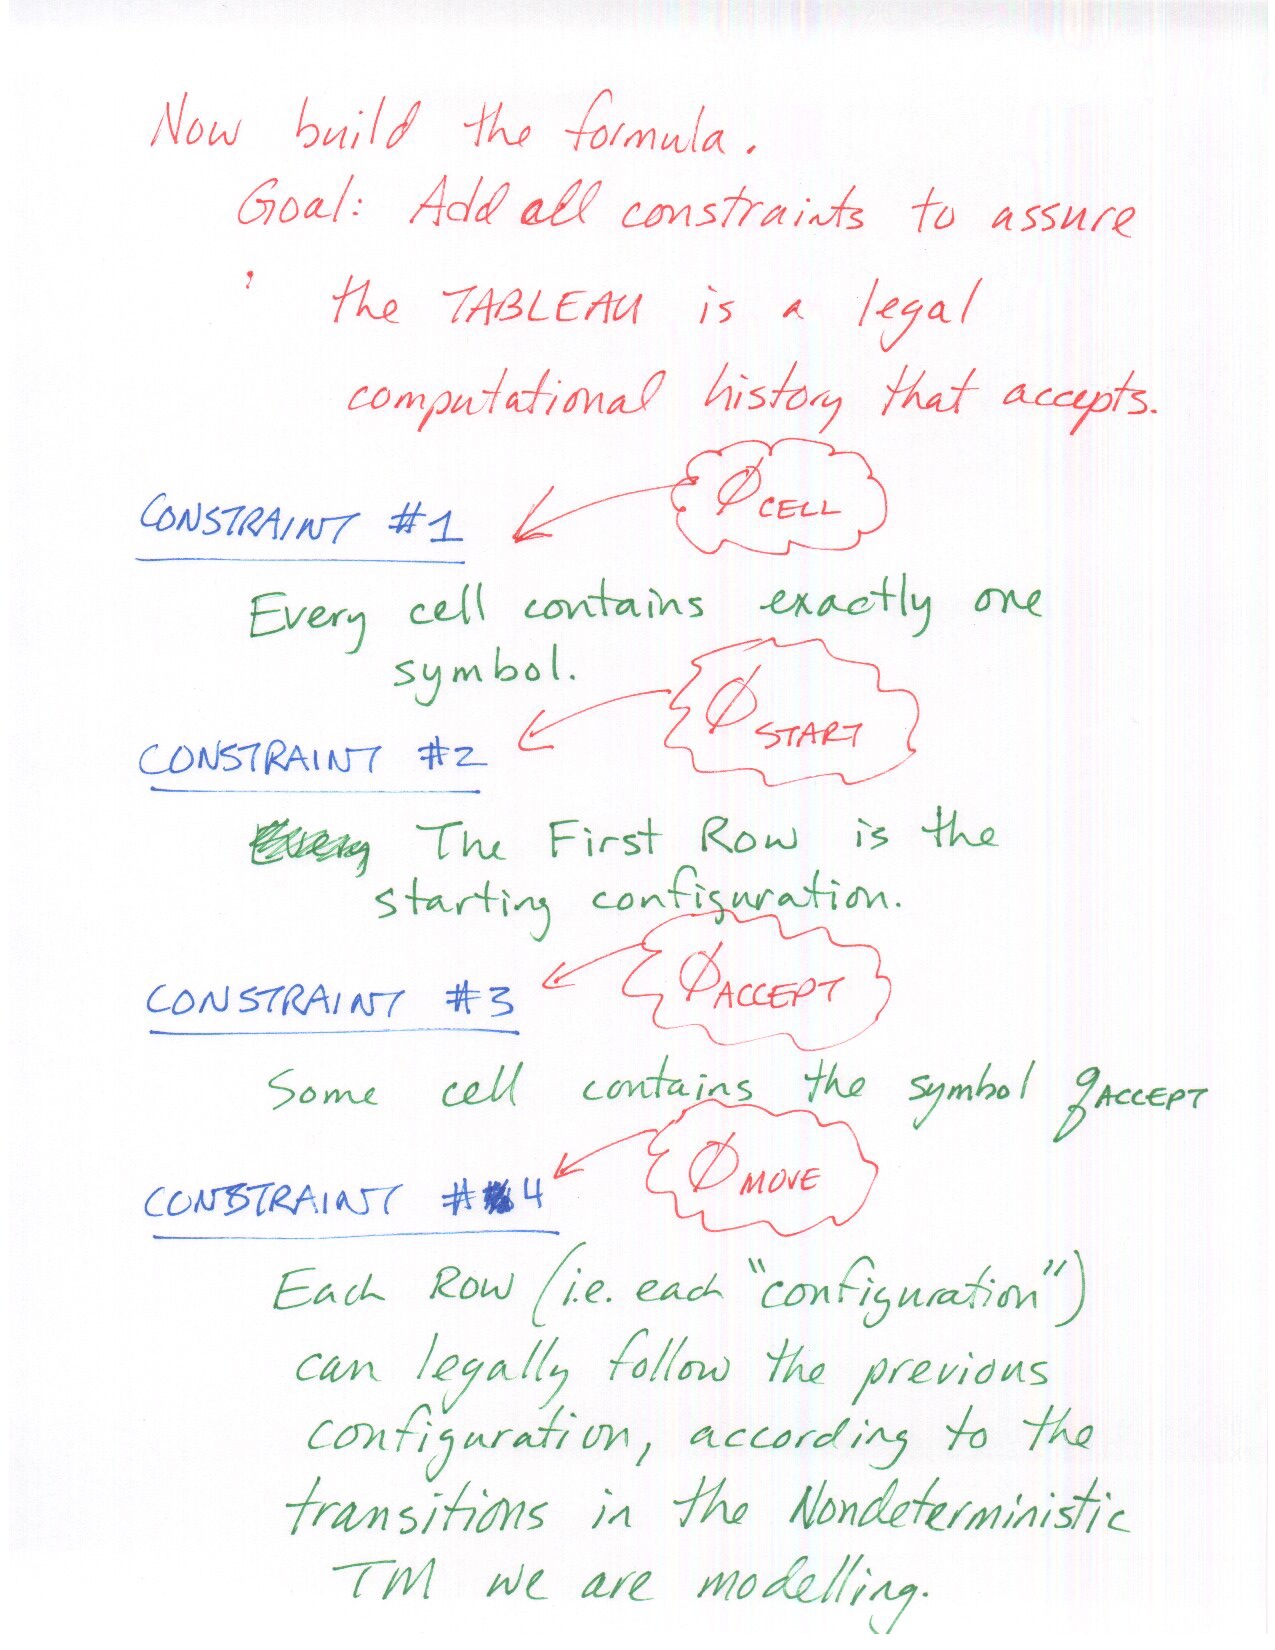 Now build the formula.
Goal: Add all constraints to assure
the TABLEAU is a legal
computational history that accepts.
CONSTRAINT #1
∅ CELL
Every cell contains exactly one
symbol.
CONSTRAINT #2
∅ START
The First Row is the
starting configuration.
CONSTRAINT #3
∅ ACCEPT
Some cell contains the symbol qACCEPT
CONSTRAINT #4
∅ MOVE
Each Row (i.e. each "configuration")
can legally follow the previous
configuration, according to the
transitions in the Nondeterministic
TM we are modelling.